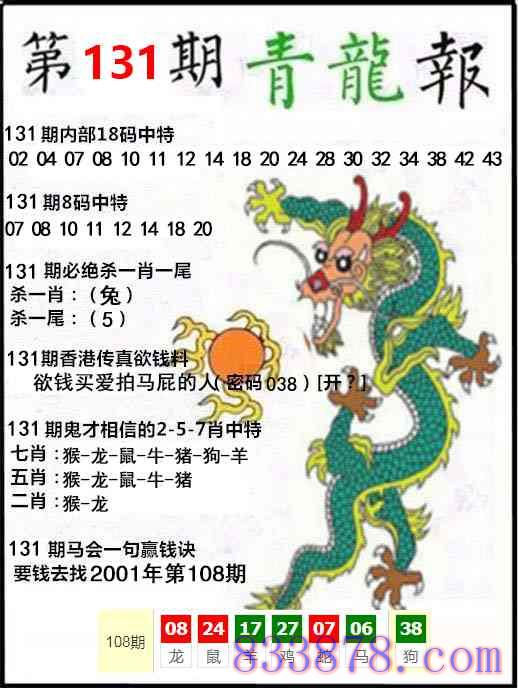 第131期青龍報
131期内部18码中特
02 04 07 08 10 11 12 14 18 20 24 28 30 32 34 38 42 43
131期8码中特
07 08 10 11 12 14 18 20
131期必绝杀一肖一尾
杀一肖：（兔）
杀一尾：（5）
131期香港传真欲钱料
欲钱买爱拍马屁的人（密码038）[开？]
131期鬼才相信的2-5-7肖中特
七肖：猴-龙-鼠-牛-猪-狗-羊
五肖：猴-龙-鼠-牛-猪
二肖：猴-龙
131期马会一句赢钱诀
要钱去找2001年第108期
108期 08 24 17 27 07 06 38
龙 鼠 羊 鸡 蛇 马 狗
833878.com